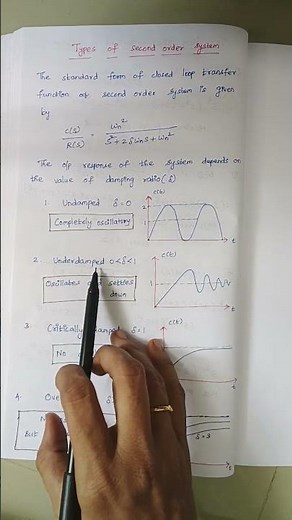 Types of second order system
The standard form of closed loop transfer
function of second order system is given
by
C(s)/R(s) = ωn²/(s²+2δωns+ωn²)
The o/p response of the system depends on
the value of damping ratio (δ)
1. Undamped δ=0
Completely oscillatory
c(t)
2
1
t
2. Underdamped 0<δ<1
Oscillates settles
down
c(t)
1
t
3. Critically δ=1
No
c(t)
t
4. Over δ
But
δ=3
t